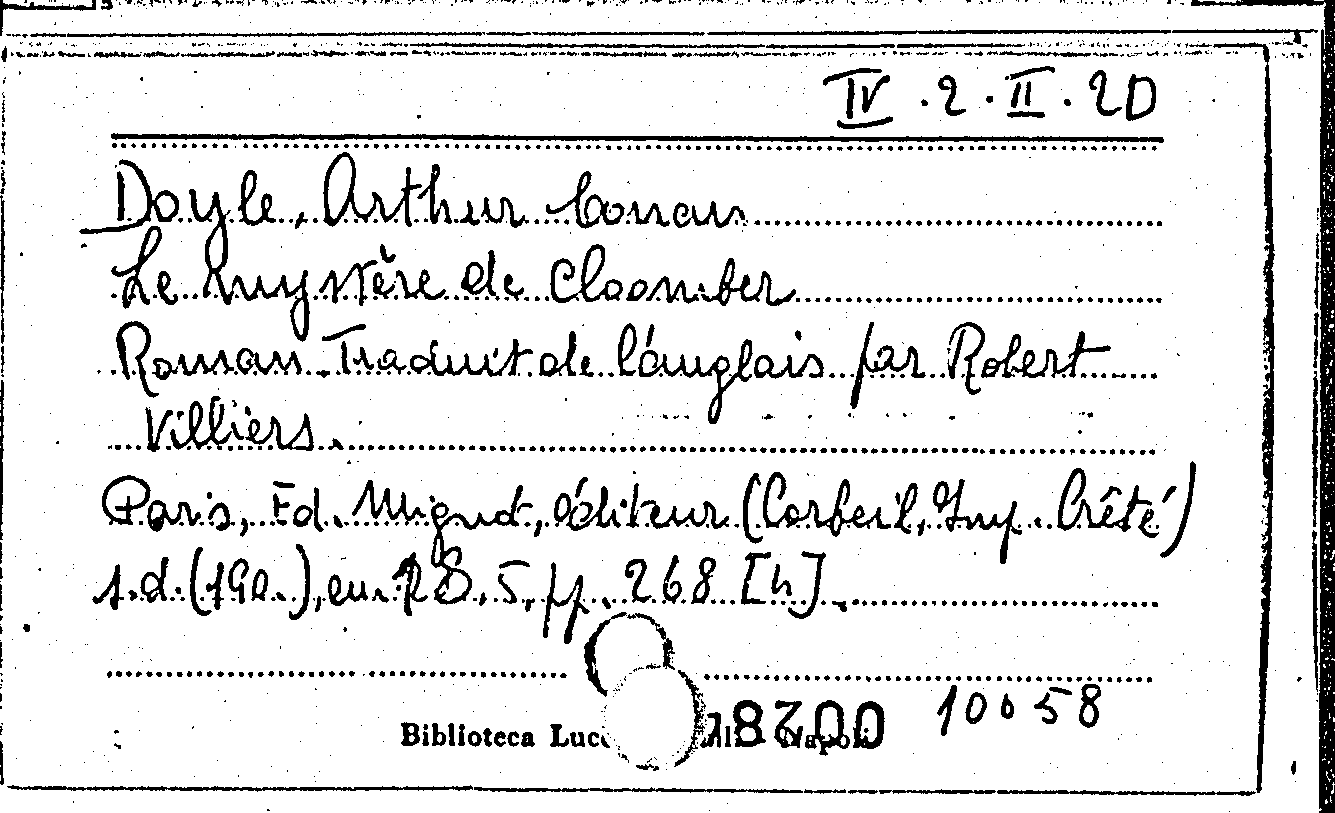 IV.2.II.2D
Doyle, Arthur Conan
Le mystère de Cloomber
Roman. Traduit de l'anglais par Robert
Villiers.
Paris, Ed. Mignot, éditeur (Corbeil, Imp. Crêté)
s.d. (190.), cm. 18,5, pp. 268 [4].
Biblioteca
10058